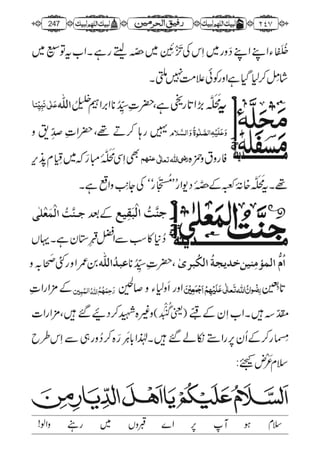 247 لبیک اللھم لبیک رفیق الحرمین لبیک اللھم لبیک ٢٤٧
خُلَفاء اپنے اپنے دَور میں اس کی تزئین میں حصّہ لیتے رہے ۔ اب یہ توسیع میں
شامل کر لیا گیا ہے اور کوئی علامت نہیں ملتی۔
مَحَلّہ مَسفَلہ یہ مَحَلّہ بڑا تاریخی ہے، حضرتِ سیِّدُنا ابراہیم خَلِیلُ اللہ عَلٰی نَبِیِّنَا
وَعَلَیْہِ الصَّلٰوۃُ وَالسَّلَام یہیں رہا کرتے تھے، حضراتِ صدیق و
فاروق و حمزہ رضی اللہ تعالٰی عنھم بھی اسی مَحَلّہ مبارَکہ میں قیام پذیر
تھے۔ یہ مَحَلّہ خانۂ کعبہ کے حصّہ دیوار ’’مُسْتَجار‘‘ کی جانب واقع ہے۔
جَنَّتُ المَعْلٰی جَنَّتُ الْبَقِیع کے بعد جَنَّتُ الْمَعْلٰی
دُنیا کا سب سے افضل قبرِستان ہے۔ یہاں
اُمُّ المؤمنین خدیجۃُ الکُبریٰ، حضرتِ سیِّدُنا عبداللہ بن عمر اور کئی صَحابہ و
تابِعین رِضْوَانُ اللہِ تَعَالٰی عَلَیْہِمْ اَجْمَعِیْن اور اولیاء و صالحین رَحِمَہُمُ اللہُ الْمُبِیْن کے مزاراتِ
مقدَّسہ ہیں۔ اب ان کے قُبّے (یعنی گُنبد) وغیرہ شہید کر دئیے گئے ہیں، مزارات
مِسمار کر کے اُن پر راستے نکالے گئے ہیں۔ لہٰذا باہَر رَہ کر دُور ہی سے اس طرح
سلام عَرض کیجئے:
اَلسَّلَامُ عَلَیْکُمْ یَا اَھْلَ الدِّیَارِ مِنَ
سلام ہو آپ پر اے قبروں میں رہنے والو!